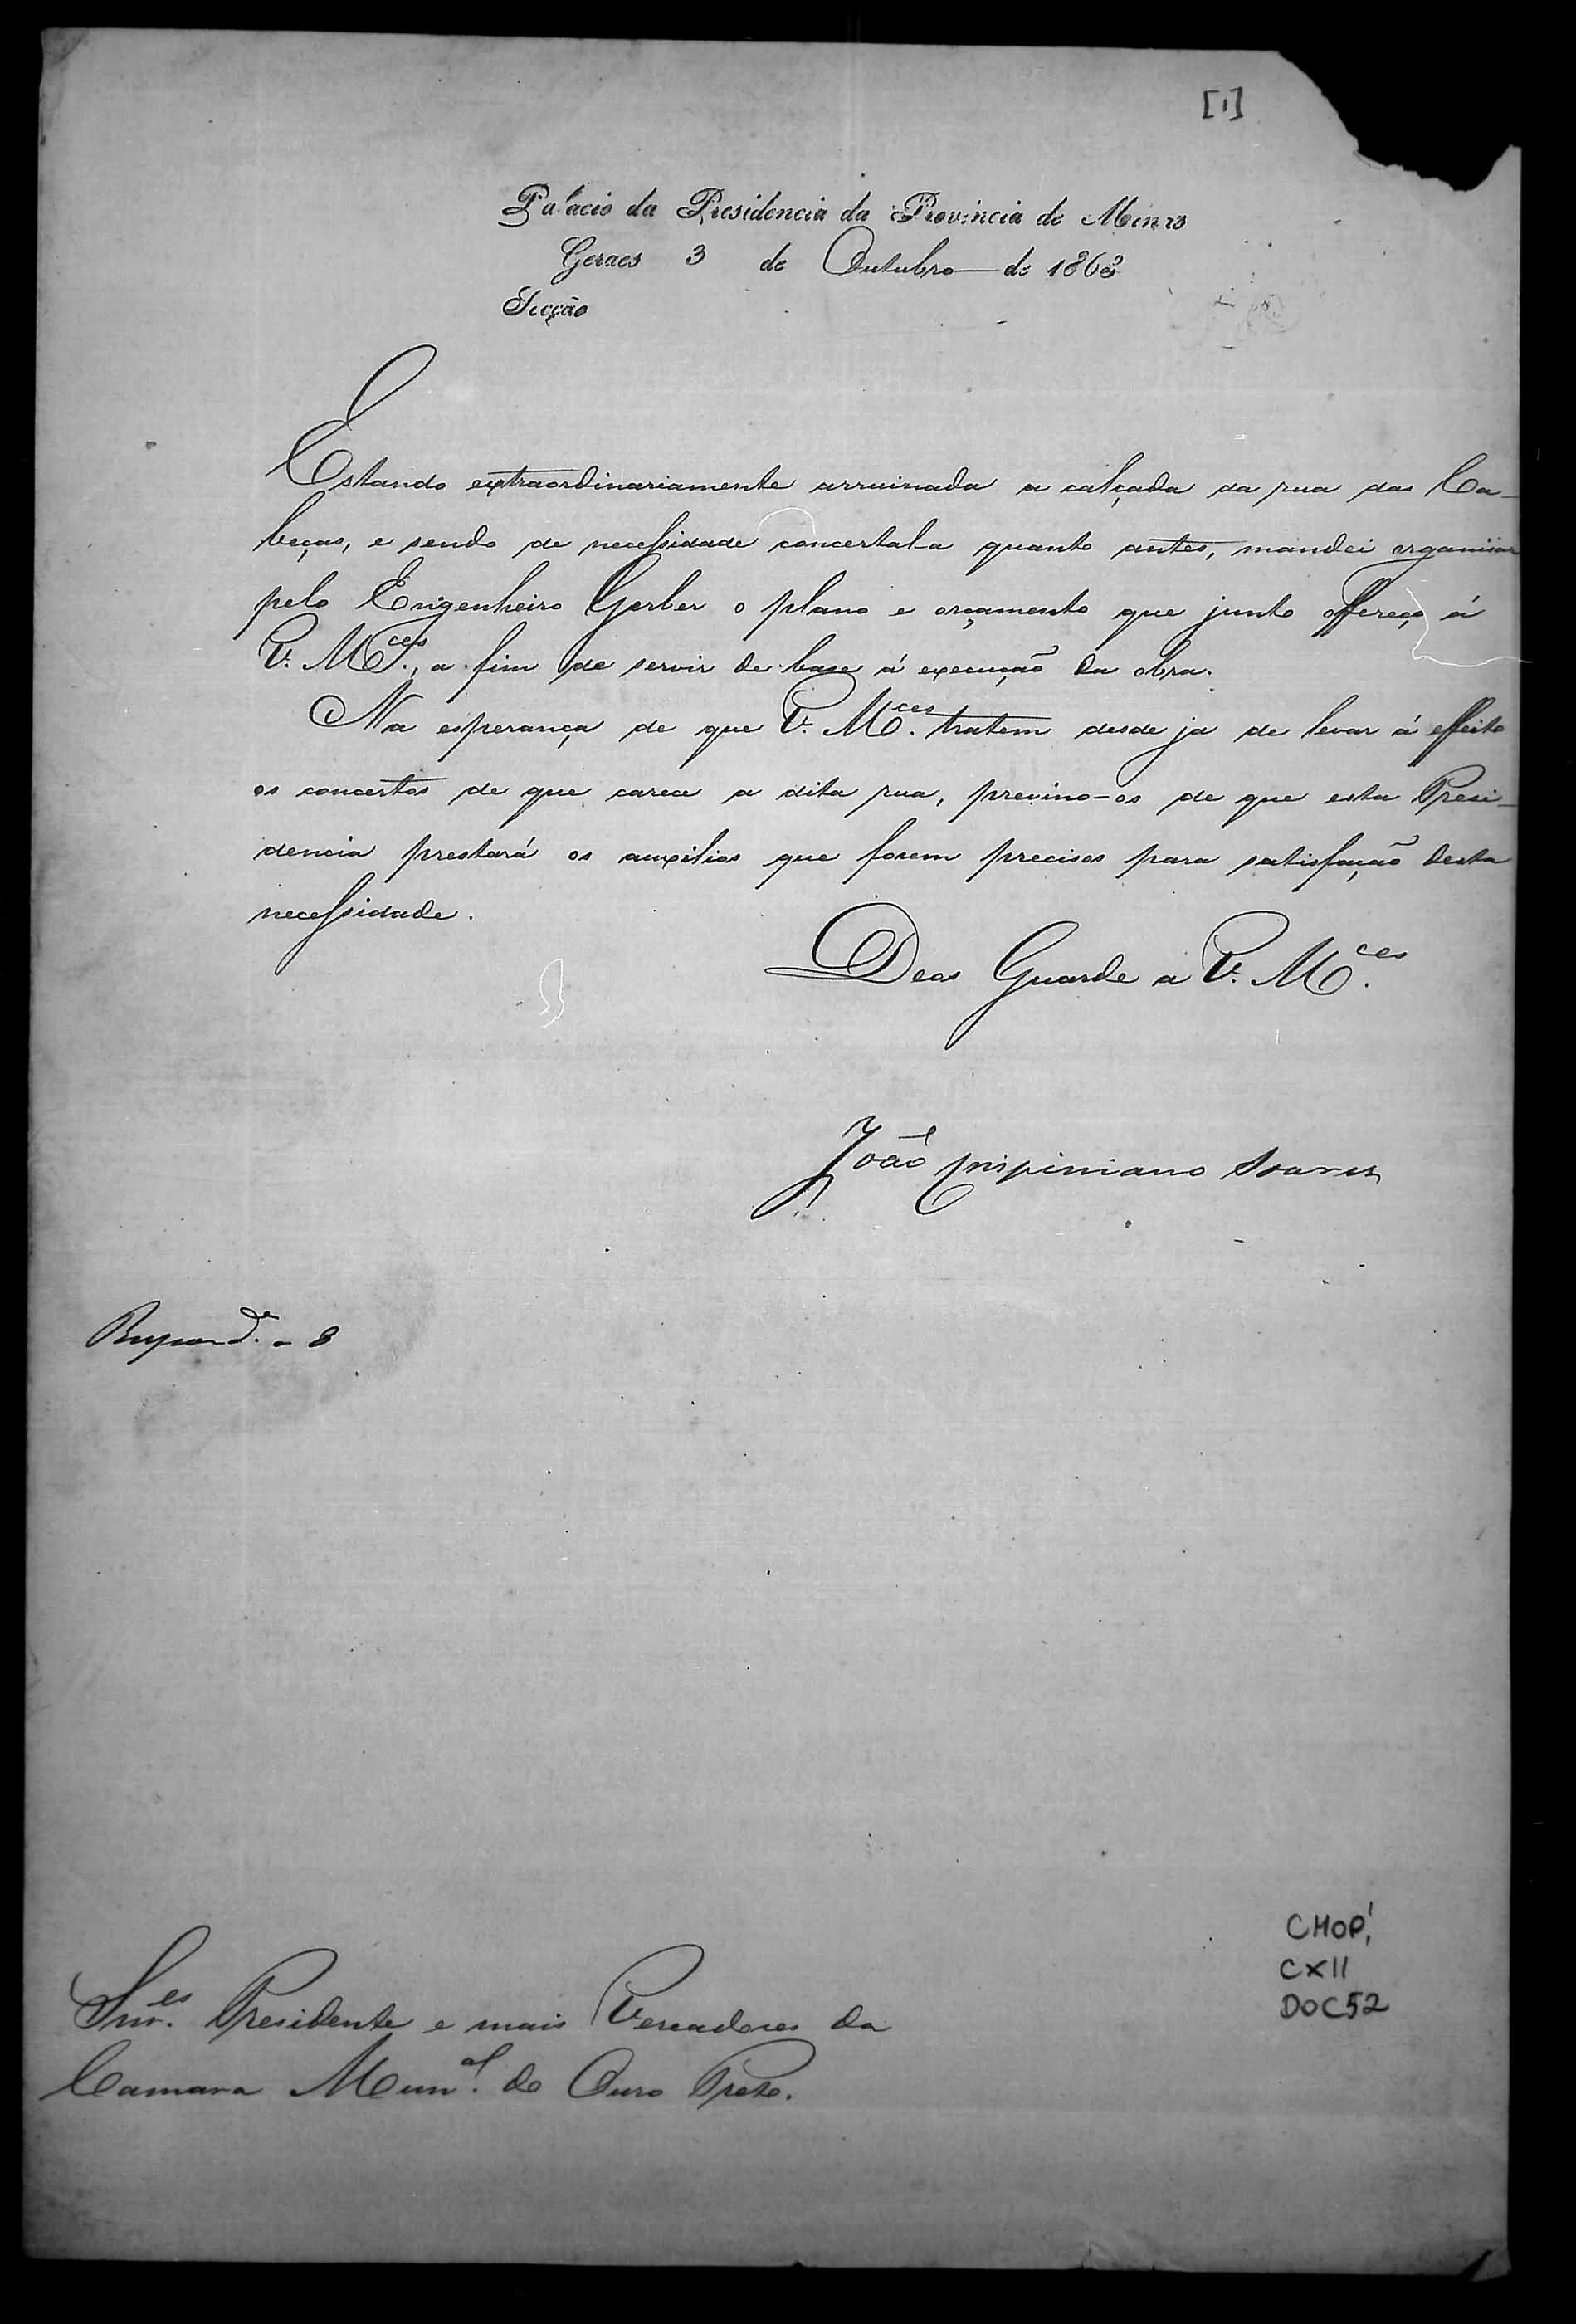 [1]
Palacio da Presidencia da Provincia de Minas
Geraes 3 de Outubro de 1863
Secção
Estando extraordinariamente arruinada a calçada da rua das Ca-
beças, e sendo de necessidade concertal-a quanto antes, mandei organisar
pelo Engenheiro Gerber o plano e orçamento que junto offereço á
V. M.ces, a fim de servir de base á execução da obra.
Na esperança de que V. M.ces tratem desde ja de levar á effeito
os concertos de que carece a dita rua, previno-os de que esta Presi-
dencia prestará os auxilios que forem precisos para satisfação desta
necessidade.
Deos Guarde a V. M.ces
João Crispiniano Soares
Respond.e a 8
CMOP,
CX11
DOC52
Snr.es Presidente e mais Vereadores da
Camara Mun.al do Ouro Preto.